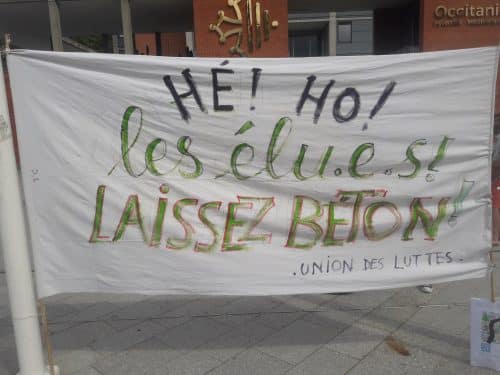 Occitanie
HÉ! HO!
les élu.e.s!
LAISSEZ BÉTON!
. UNION DES LUTTES .